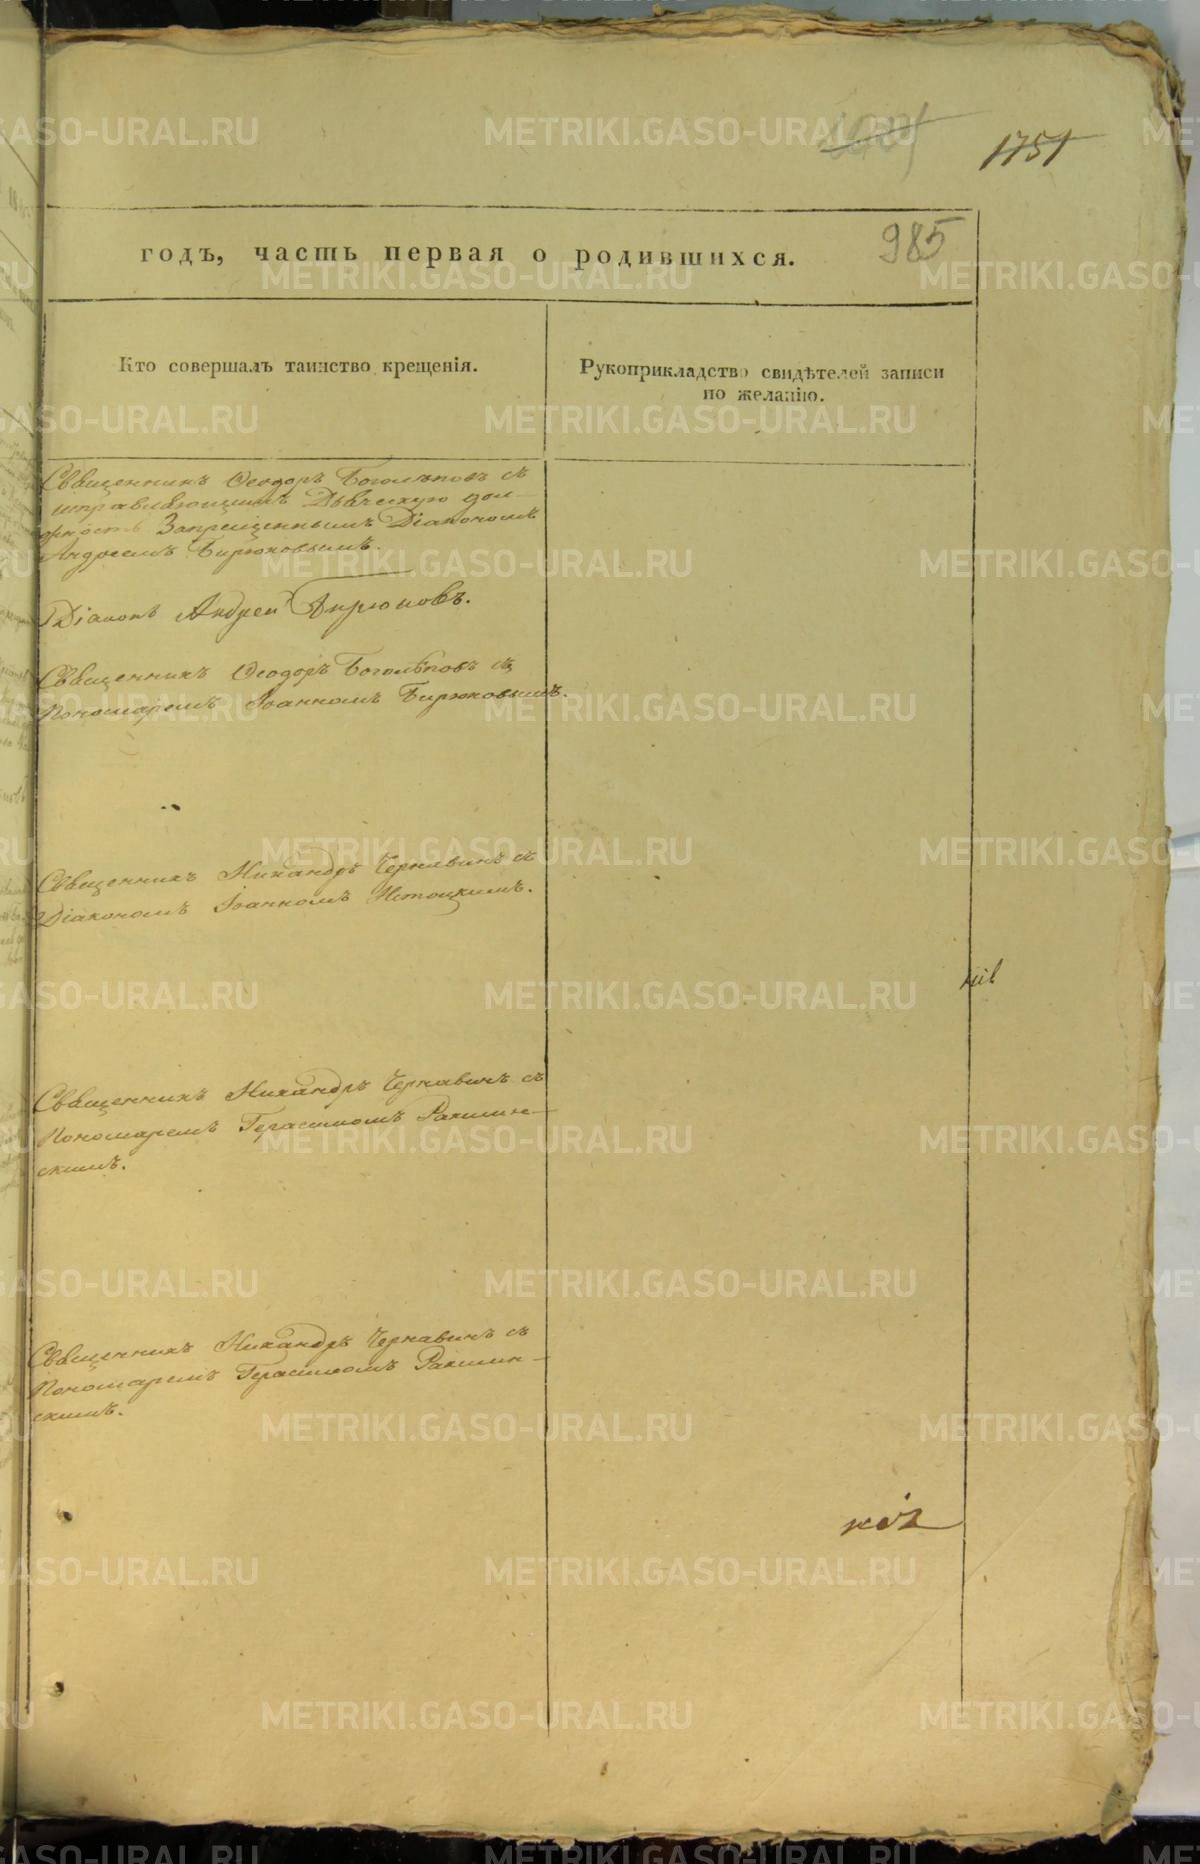 1751
985
годъ, часть первая о родившихся.
Кто совершалъ таинство крещенія.
Рукоприкладство свидѣтелей записи
по желанію.
Священникъ Ѳеодоръ Боголѣповъ съ
исправляющимъ Дьяческую дол-
жность Запрещеннымъ Діакономъ
Андреемъ Бирюковымъ.
Діаконъ Андрей Бирюковъ.
Священникъ Ѳеодоръ Боголѣповъ съ
Пономаремъ Іоанномъ Бирюковымъ.
Священникъ Никандръ Чернавинъ съ
Діакономъ Іоанномъ Истоцкимъ.
Священникъ Никандръ Чернавинъ съ
Пономаремъ Герасимомъ Ракшин-
скимъ.
Священникъ Никандръ Чернавинъ съ
Пономаремъ Герасимомъ Ракшин-
скимъ.
METRIKI.GASO-URAL.RU